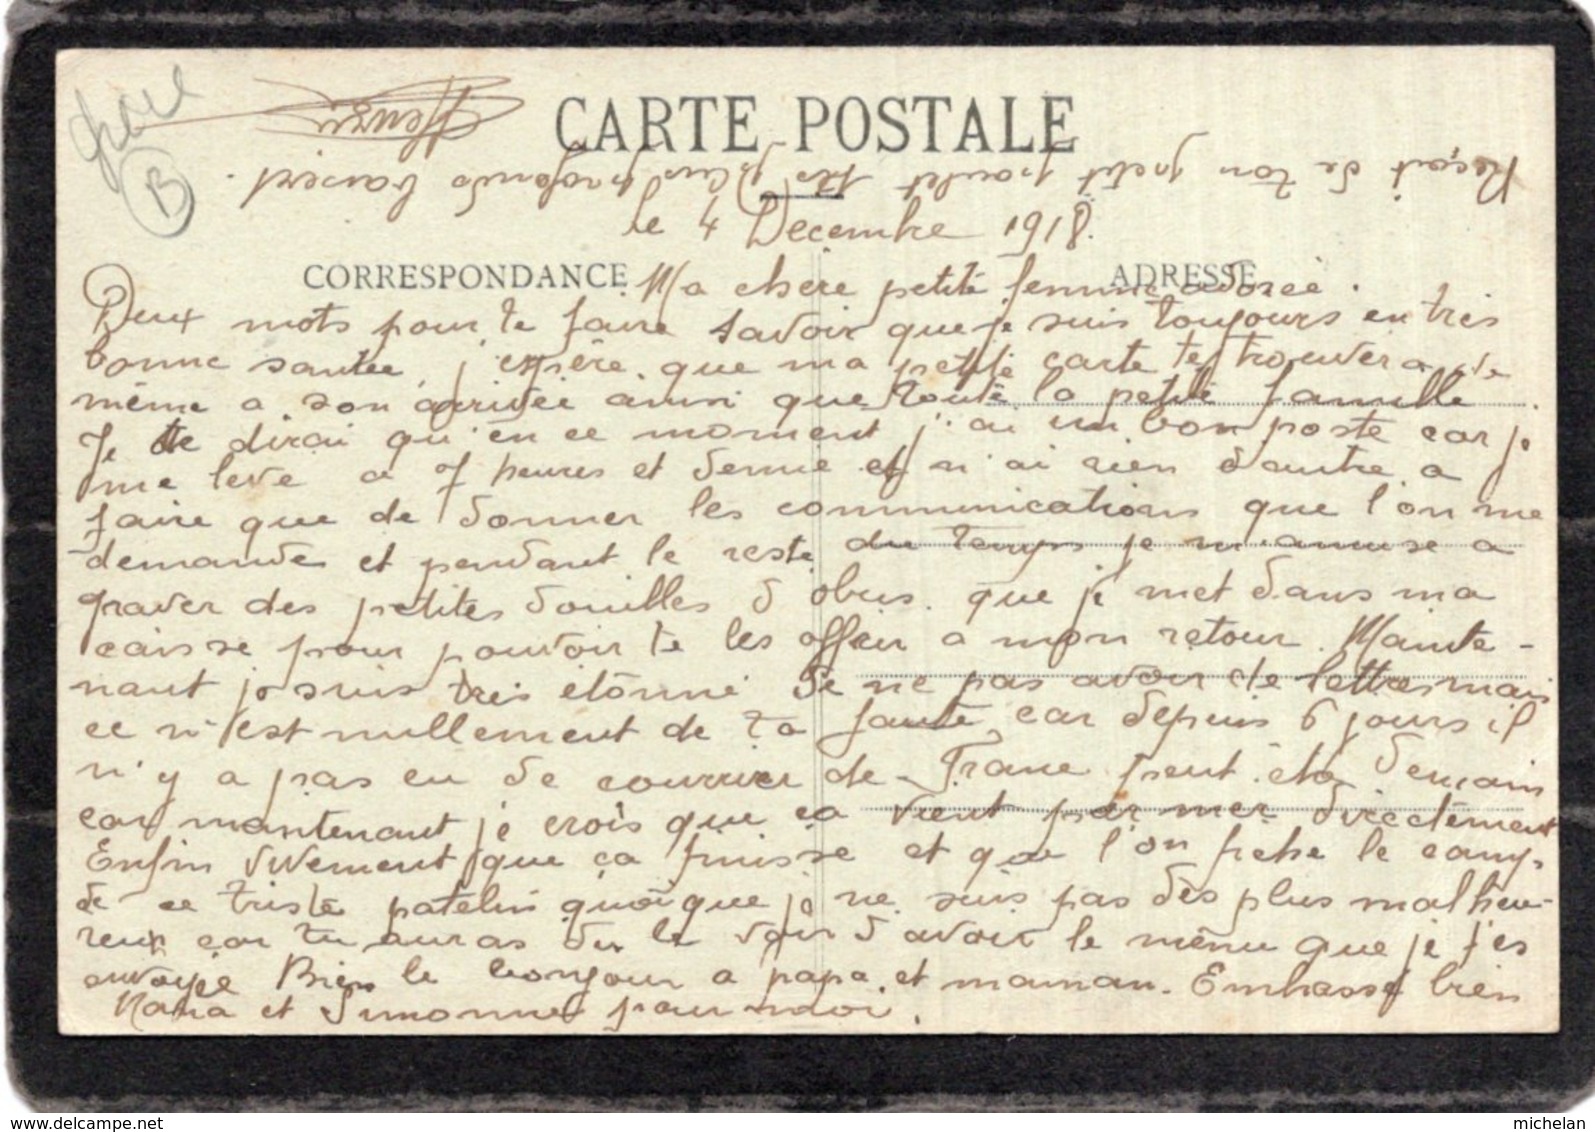 CARTE POSTALE
le 4 Decembre 1918.
CORRESPONDANCE
ADRESSE
Ma chère petite femme adorée.
Deux mots pour te faire savoir que je suis toujours en très
bonne santée, j'espère que ma petite carte te trouvera de
même a son arrivée ainsi que toute la petite famille
Je te dirai qu'en ce moment j'ai un bon poste car je
me leve a 7 heures et demie et n'ai rien d'autre a
faire que de donner les communications que l'on me
demande et pendant le reste du temps je m'amuse a
graver des petites douilles d'obus que je met dans ma
caisse pour pouvoir te les offrir a mon retour. Mainte-
nant je suis très étonné de ne pas avoir de lettres mais
ce n'est nullement de ta faute car depuis 6 jours il
n'y a pas eu de courrier de France peut être demain
car maintenant je crois que ça vient par mer directement
Enfin vivement que ça finisse et que l'on fiche le camp
de ce triste patelin quoique je ne suis pas des plus malheu-
reux car tu auras du le voir d'avoir le menu que je t'es
envoyé Bien le bonjour a papa et maman. Embasse bien
Nana et Simonne pour moi.
Reçoit de ton petit poulet tes plus profonds baisers.
Henri
B
www.delcampe.net
michelan